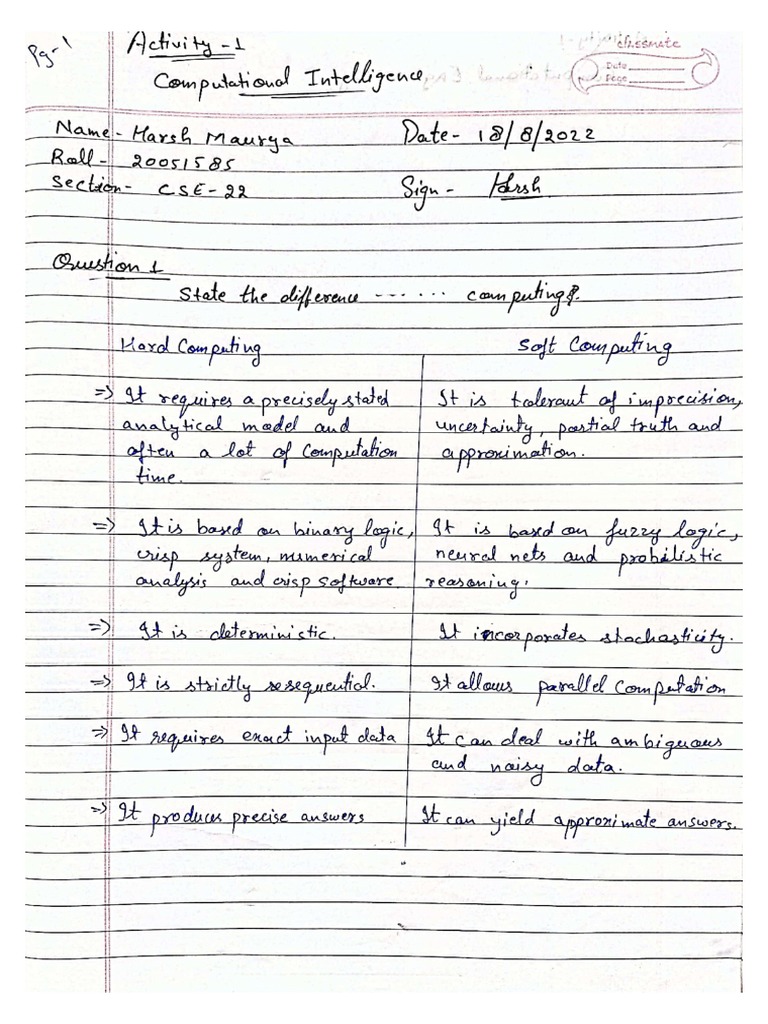 Pg-1
Activity-1
classmate
Date
Page
Computational Intelligence
Name- Harsh Maurya
Date- 18/8/2022
Roll- 20051585
Section- CSE-22
Sign- Harsh
Question 1
State the difference ------ computing?
Hard Computing
Soft Computing
=> It requires a precisely stated
analytical model and
often a lot of computation
time.
It is tolerant of imprecision,
uncertainty, partial truth and
approximation.
=> It is based on binary logic,
crisp system, numerical
analysis and crisp software
It is based on fuzzy logic,
neural nets and probilistic
reasoning.
=> It is deterministic.
It incorporates stochasticity.
=> It is strictly sesequential.
It allows parallel computation
=> It requires exact input data
It can deal with ambiguous
and noisy data.
=> It produces precise answers
It can yield approximate answers.